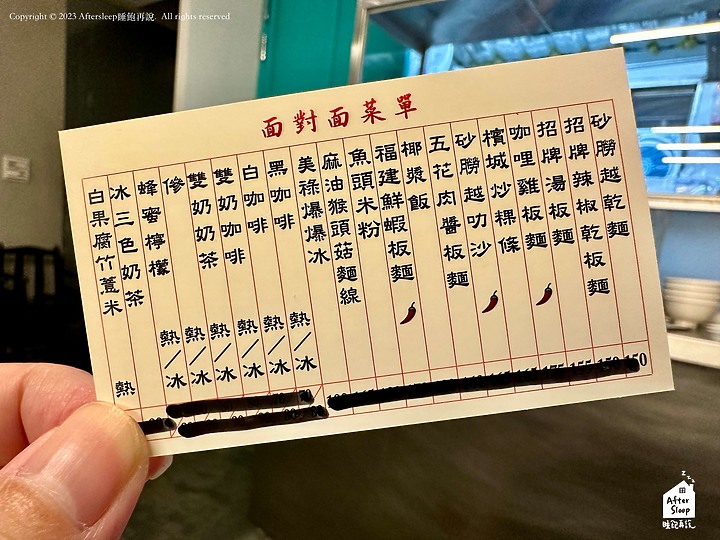 Copyright © 2023 Aftersleep睡飽再說. All rights reserved
面對面菜單
砂朥越乾麵 150
招牌辣椒乾板麵
招牌湯板麵
咖哩雞板麵
檳城炒粿條
砂朥越叻沙
五花肉醬板麵
椰漿飯
福建鮮蝦板麵
魚頭米粉
麻油猴頭菇麵線
美祿爆爆冰
黑咖啡 熱/冰
白咖啡 熱/冰
雙奶咖啡 熱/冰
雙奶奶茶 熱/冰
傪 熱/冰
蜂蜜檸檬 熱/冰
冰三色奶茶
白果腐竹薏米 熱
After
Sleep
睡飽再說